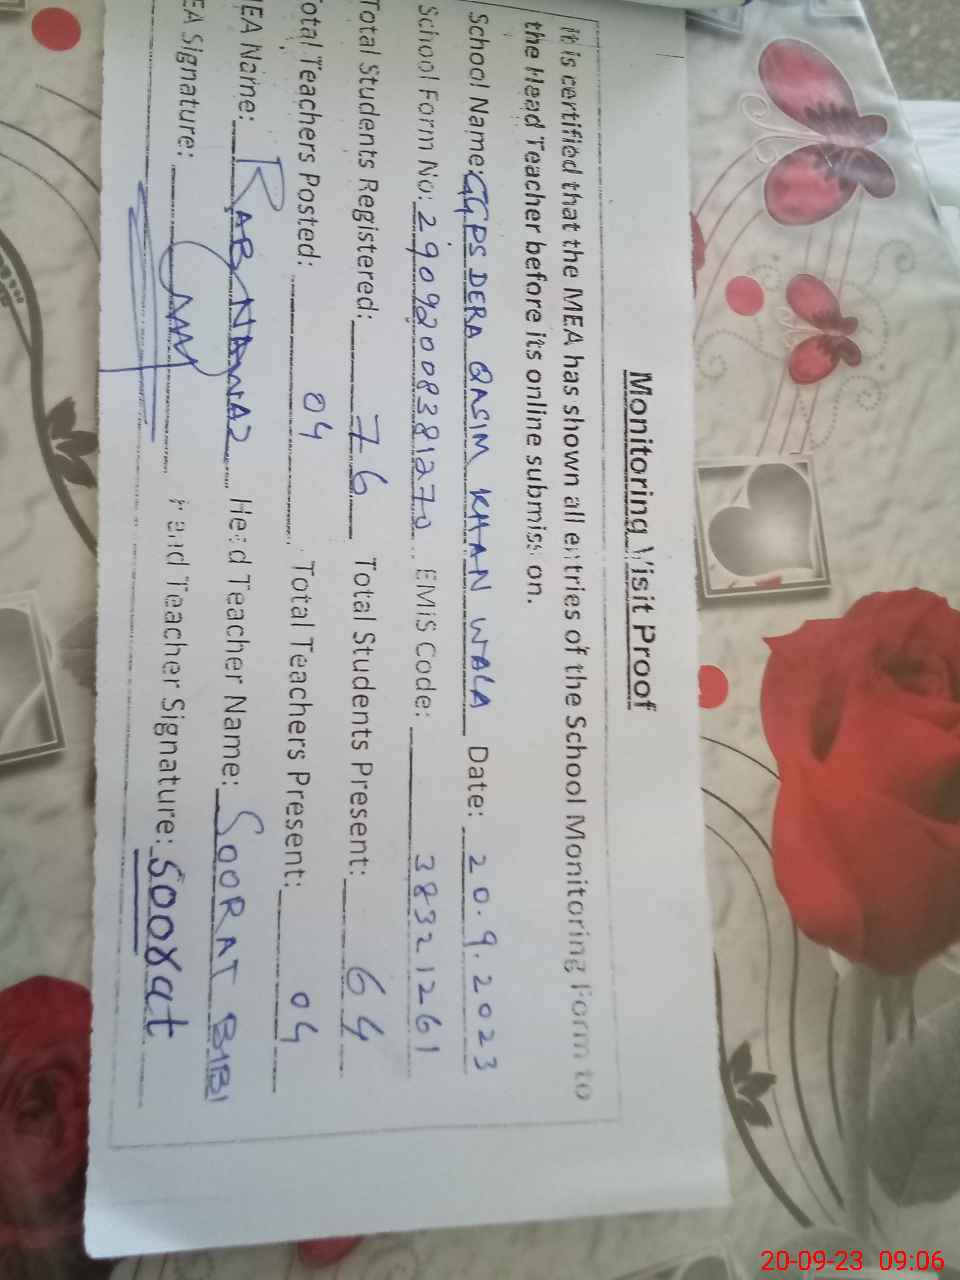 Monitoring Visit Proof
It is certified that the MEA has shown all entries of the School Monitoring Form to
the Head Teacher before its online submission.
School Name: GGPS DERA QASIM KHAN WALA Date: 20.9.2023
School Form No: 29092008381270 EMIS Code: 38321261
Total Students Registered: 76 Total Students Present: 64
Total Teachers Posted: 04 Total Teachers Present: 04
MEA Name: RAB NAWAZ Head Teacher Name: SOORAT BIBI
EA Signature: Head Teacher Signature: Soorat
20-09-23 09:06